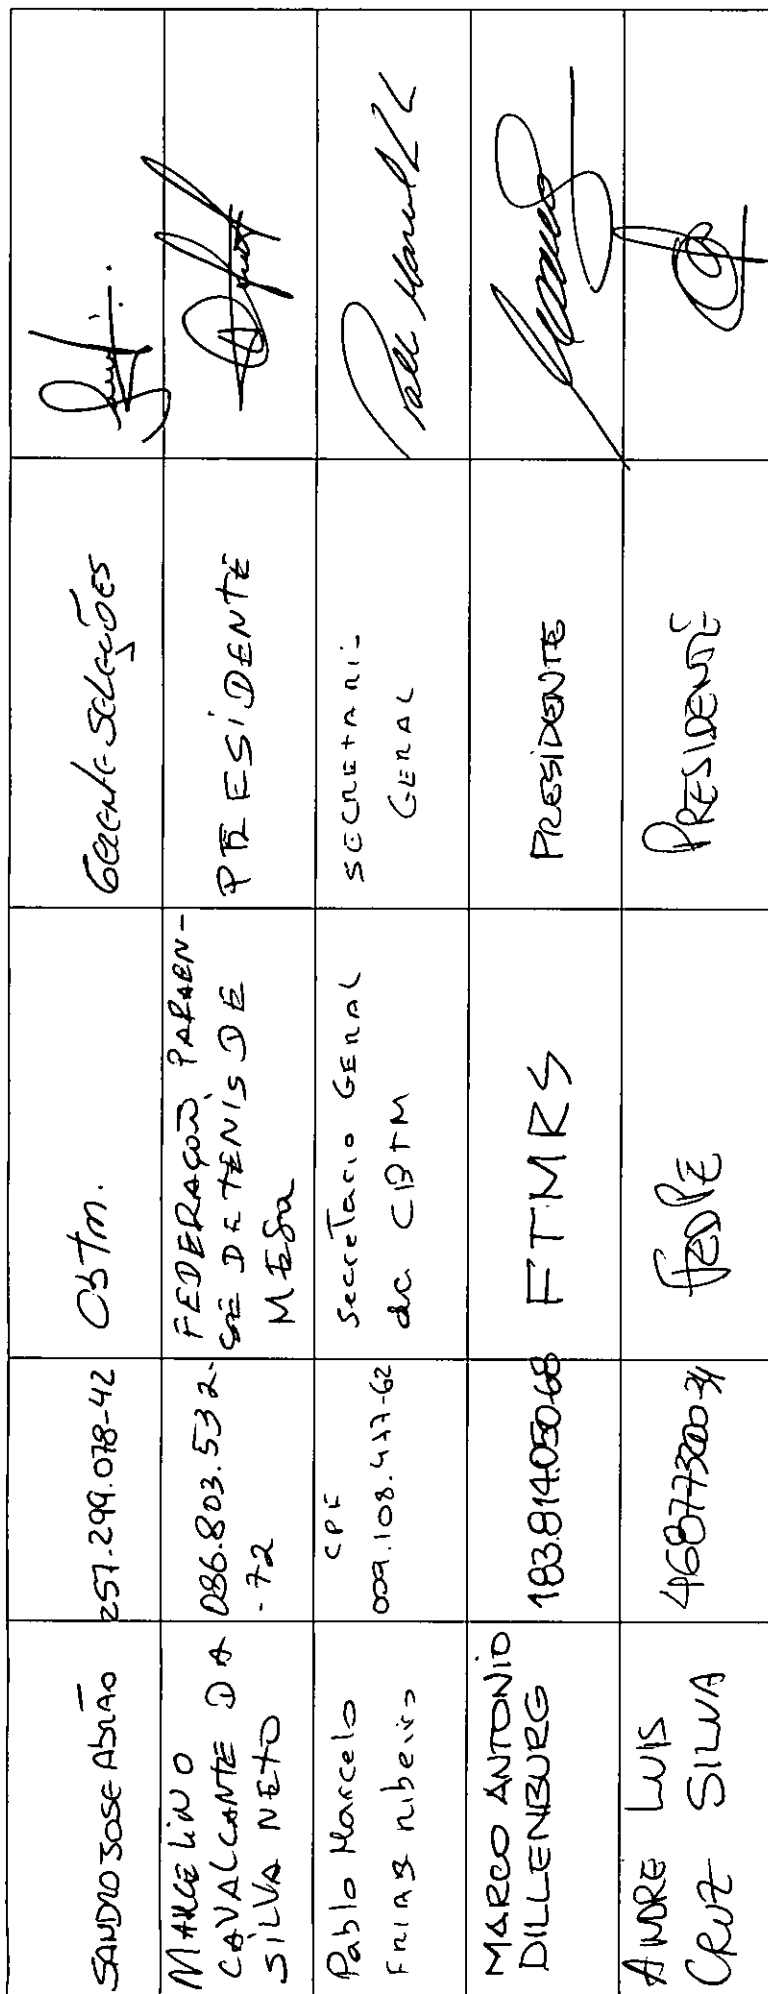 SANDRO JOSE ABRÃO
257.299.078-42
CBTM.
GERENTE SELEÇÕES
MARCELINO
CAVALCANTE DA
SILVA NETO
086.803.532-
-72
FEDERAÇÃO PARAEN-
SE DE TENIS DE
MESA
PRESIDENTE
Pablo Marcelo
FRIAS RIBEIRO
CPF
009.108.477-62
Secretario GERAL
da CBTM
SECRETARI-
GERAL
MARCO ANTONIO
DILLENBURG
183.814.050-68
FTMRS
PRESIDENTE
ANDRE LUIS
CRUZ SILVA
46877300034
FEDPE
PRESIDENTE